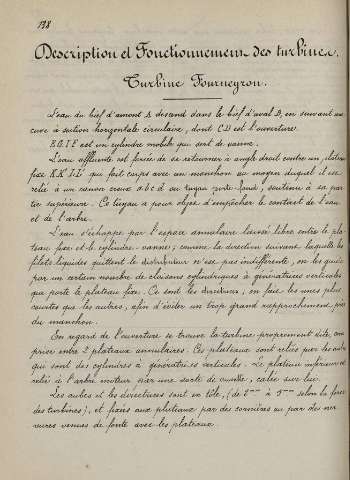 138
Description et Fonctionnement des turbines.
Turbine Fourneyron.
L'eau du bief d'amont A descend dans le bief d'aval D, en suivant une
cuve à section horizontale circulaire, dont CD est l'ouverture.
EGIF est un cylindre mobile qui sert de vanne.
L'eau affluente est forcée de se retourner à angle droit contre un plateau
fixe KK'LL' qui fait corps avec un manchon au moyen duquel il est
relié à un canon creux abcd ou tuyau porte-fond, soutenu à sa par
tie supérieure. Ce tuyau a pour objet d'empêcher le contact de l'eau
et de l'arbre.
L'eau s'échappe par l'espace annulaire laissé libre entre le pla
teau fixe et le cylindre-vanne; comme la direction suivant laquelle les
filets liquides quittent le distributeur n'est pas indifférente, on les guide
par un certain nombre de cloisons cylindriques à génératrices verticales
que porte le plateau fixe. Ce sont les directrices, on fait les unes plus
courtes que les autres, afin d'éviter un trop grand rapprochement près
du manchon.
En regard de l'ouverture se trouve la turbine proprement dite, com
prise entre 2 plateaux annulaires. Ces plateaux sont reliés par les aubes
qui sont des cylindres à génératrices verticales. Le plateau inférieur est
relié à l'arbre moteur par une sorte de cuvette, calée sur lui.
Les aubes et les directrices sont en tôle, (de 2mm à 5mm selon la force
des turbines), et fixés aux plateaux par des cornières ou par des ner
vures venues de fonte avec les plateaux.